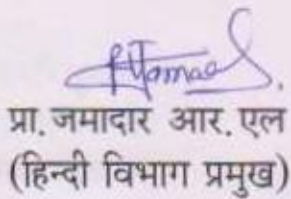 प्रा. जमादार आर. एल
(हिन्दी विभाग प्रमुख)